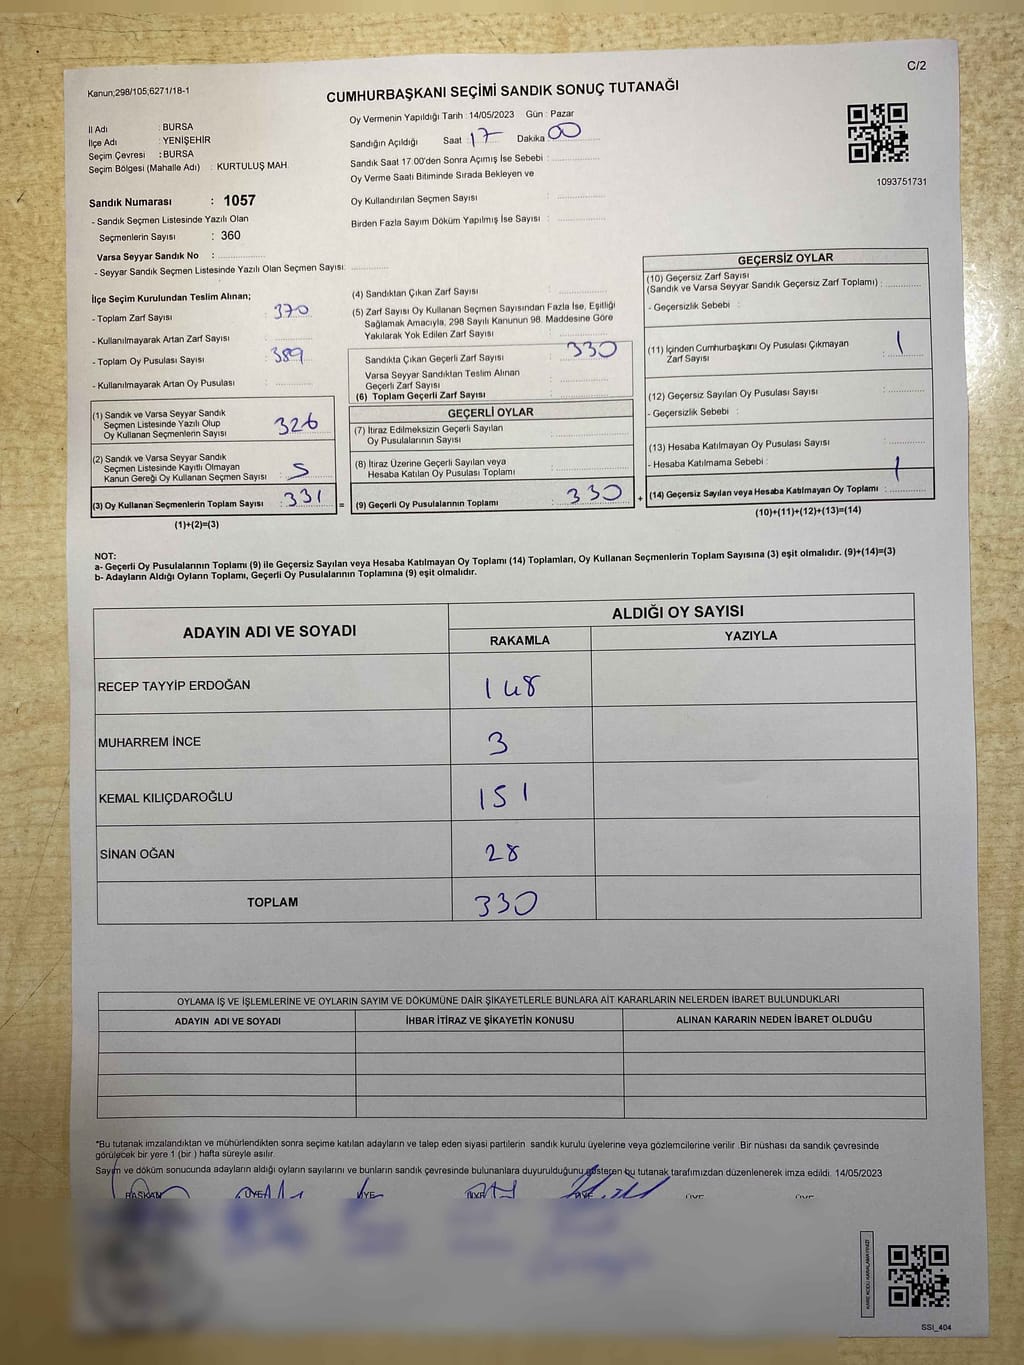 C/2
Kanun;298/105,6271/18-1
CUMHURBAŞKANI SEÇİMİ SANDIK SONUÇ TUTANAĞI
İl Adı : BURSA
İlçe Adı : YENİŞEHİR
Seçim Çevresi : BURSA
Seçim Bölgesi (Mahalle Adı) : KURTULUŞ MAH.
Sandık Numarası : 1057
- Sandık Seçmen Listesinde Yazılı Olan
Seçmenlerin Sayısı : 360
Varsa Seyyar Sandık No :
- Seyyar Sandık Seçmen Listesinde Yazılı Olan Seçmen Sayısı:
Oy Vermenin Yapıldığı Tarih : 14/05/2023 Gün : Pazar
Sandığın Açıldığı Saat : 17 Dakika : 00
Sandık Saat 17.00'den Sonra Açımış İse Sebebi :
Oy Verme Saati Bitiminde Sırada Bekleyen ve
Oy Kullandırılan Seçmen Sayısı :
Birden Fazla Sayım Döküm Yapılmış İse Sayısı :
1093751731
İlçe Seçim Kurulundan Teslim Alınan;
- Toplam Zarf Sayısı : 370
- Kullanılmayarak Artan Zarf Sayısı :
- Toplam Oy Pusulası Sayısı : 389
- Kullanılmayarak Artan Oy Pusulası :
(1) Sandık ve Varsa Seyyar Sandık
Seçmen Listesinde Yazılı Olup
Oy Kullanan Seçmenlerin Sayısı : 326
(2) Sandık ve Varsa Seyyar Sandık
Seçmen Listesinde Kayıtlı Olmayan
Kanun Gereği Oy Kullanan Seçmen Sayısı : 5
(3) Oy Kullanan Seçmenlerin Toplam Sayısı : 331
(1)+(2)=(3)
=
(4) Sandıktan Çıkan Zarf Sayısı :
(5) Zarf Sayısı Oy Kullanan Seçmen Sayısından Fazla İse, Eşitliği
Sağlamak Amacıyla, 298 Sayılı Kanunun 98. Maddesine Göre
Yakılarak Yok Edilen Zarf Sayısı :
Sandıkta Çıkan Geçerli Zarf Sayısı : 330
Varsa Seyyar Sandıktan Teslim Alınan
Geçerli Zarf Sayısı :
(6) Toplam Geçerli Zarf Sayısı :
GEÇERLİ OYLAR
(7) İtiraz Edilmeksizin Geçerli Sayılan
Oy Pusulalarının Sayısı :
(8) İtiraz Üzerine Geçerli Sayılan veya
Hesaba Katılan Oy Pusulası Toplamı :
(9) Geçerli Oy Pusulalarının Toplamı : 330
+
GEÇERSİZ OYLAR
(10) Geçersiz Zarf Sayısı
(Sandık ve Varsa Seyyar Sandık Geçersiz Zarf Toplamı) :
- Geçersizlik Sebebi :
(11) İçinden Cumhurbaşkanı Oy Pusulası Çıkmayan
Zarf Sayısı : 1
(12) Geçersiz Sayılan Oy Pusulası Sayısı :
- Geçersizlik Sebebi :
(13) Hesaba Katılmayan Oy Pusulası Sayısı :
- Hesaba Katılmama Sebebi :
(14) Geçersiz Sayılan veya Hesaba Katılmayan Oy Toplamı : 1
(10)+(11)+(12)+(13)=(14)
NOT:
a- Geçerli Oy Pusulalarının Toplamı (9) ile Geçersiz Sayılan veya Hesaba Katılmayan Oy Toplamı (14) Toplamları, Oy Kullanan Seçmenlerin Toplam Sayısına (3) eşit olmalıdır. (9)+(14)=(3)
b- Adayların Aldığı Oyların Toplamı, Geçerli Oy Pusulalarının Toplamına (9) eşit olmalıdır.
ADAYIN ADI VE SOYADI
ALDIĞI OY SAYISI
RAKAMLA YAZIYLA
RECEP TAYYİP ERDOĞAN 148
MUHARREM İNCE 3
KEMAL KILIÇDAROĞLU 151
SİNAN OĞAN 28
TOPLAM 330
OYLAMA İŞ VE İŞLEMLERİNE VE OYLARIN SAYIM VE DÖKÜMÜNE DAİR ŞİKAYETLERLE BUNLARA AİT KARARLARIN NELERDEN İBARET BULUNDUKLARI
ADAYIN ADI VE SOYADI İHBAR İTİRAZ VE ŞİKAYETİN KONUSU ALINAN KARARIN NEDEN İBARET OLDUĞU
*Bu tutanak imzalandıktan ve mühürlendikten sonra seçime katılan adayların ve talep eden siyasi partilerin sandık kurulu üyelerine veya gözlemcilerine verilir .Bir nüshası da sandık çevresinde
görülecek bir yere 1 (bir ) hafta süreyle asılır.
Sayım ve döküm sonucunda adayların aldığı oyların sayılarını ve bunların sandık çevresinde bulunanlara duyurulduğunu gösteren bu tutanak tarafımızdan düzenlenerek imza edildi. 14/05/2023
BAŞKAN ÜYE ÜYE ÜYE ÜYE ÜYE
SSI_404